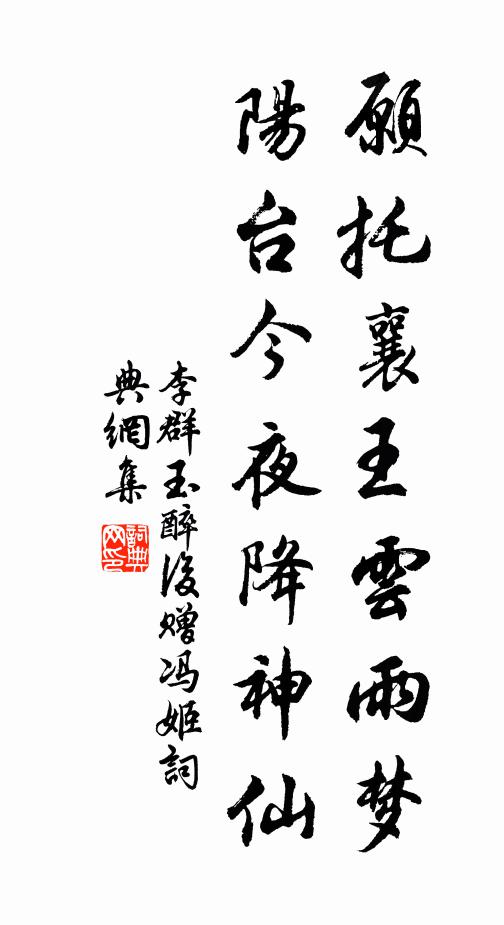 願托襄王雲雨梦
陽台今夜降神仙
李群玉醉後贈冯姬詞
典網集
詞典网印